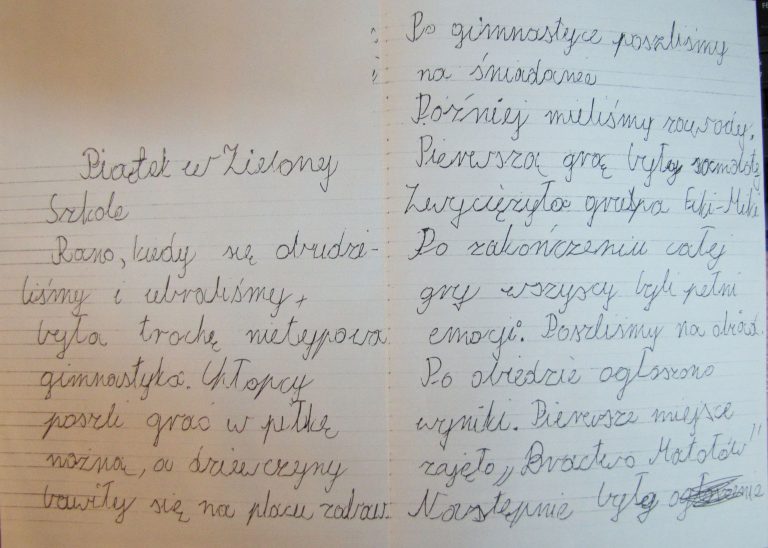 Piątek w Zielony
Szkole
Rano, kiedy się obudzi-
liśmy i ubraliśmy,
była trochę nietypowa
gimnastyka. Chłopcy
poszli grać w piłkę
nożną, a dziewczyny
bawiły się na placu zabaw.
Po gimnastyce poszliśmy
na śniadanie
Później mieliśmy zawody.
Pierwszą grą były
Zwyciężyła grupa Eki-Meki
Po zakończeniu całej
gry wszyscy byli pełni
emocji. Poszliśmy na obiad.
Po obiedzie ogłoszono
wyniki. Pierwsze miejsce
zajęło „Bractwo Matołów"
Następnie były